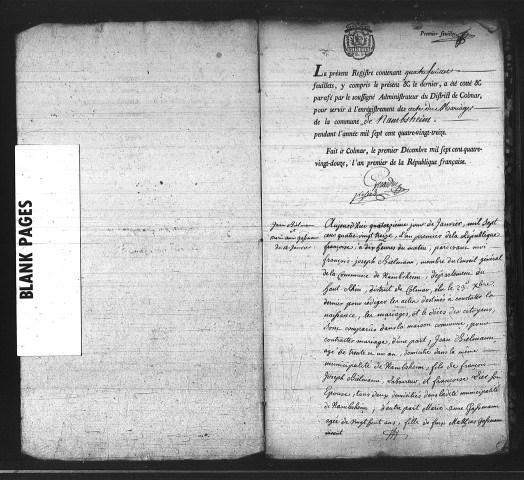 BLANK PAGES
Premier feuillet
Le présent Registre contenant quatre
feuillets, y compris le présent & le dernier, a été coté &
parafé par le soussigné Administrateur du District de Colmar,
pour servir à l'enrégistrement des actes de Mariages
de la commune de Nambsheim
pendant l'année mil sept cent quatre-vingt-treize.
Fait à Colmar, le premier Décembre mil sept cent quatre-
vingt-douze, l'an premier de la République française.
Jean Bielmann
et
du 14 Janvier
Aujourdhui quatorzième jour de Janvier, mil Sept
cent quatre vingt treize, l'an premier de la République
françoise, à dix heures du matin, pardevant moi
françois Joseph Bielmann, membre du Conseil général
de la Commune de Nambsheim, département du
haut Rhin, district de Colmar, élu le 23e Xbre
dernier pour rédiger les actes destinés à constater la
naissance, les mariages, et le décès des citoyens,
sont comparus dans la maison commune, pour
contracter mariage, d'une part, Jean Bielmann
agé de trente un an, domicilié dans la même
municipalité de Nambsheim, fils de françois
Joseph Bielmann, laboureur, et françoise son
Epouse, tous deux domiciliés dans ladite municipalité
de Nambsheim; d'autre part Marie anne Gassmann
agée de vingt huit ans, fille de feu Mathias Gassmann